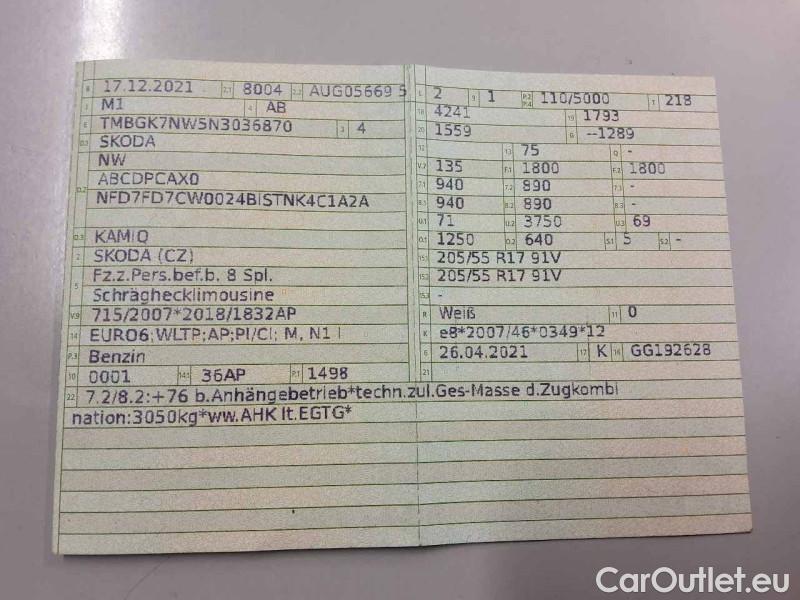 B 17.12.2021 2.1 8004 2.2 AUG05669 5
J M1 4 AB
E TMBGK7NW5N3036870 3 4
D.1 SKODA
NW
D.2 ABCDPCAX0
NFD7FD7CW0024BISTNK4C1A2A
D.3 KAMIQ
2 SKODA (CZ)
5 Fz.z.Pers.bef.b. 8 Spl.
Schräghecklimousine
V.9 715/2007*2018/1832AP
14 EURO6;WLTP;AP;PI/CI; M, N1 I
P.3 Benzin
10 0001 14.1 36AP P.1 1498
L 2 9 1 P.2 P.4 110/5000 T 218
18 4241 19 1793
20 1559 G --1289
12 - 13 75 Q -
V.7 135 F.1 1800 F.2 1800
7.1 940 7.2 890 7.3 -
8.1 940 8.2 890 8.3 -
U.1 71 U.2 3750 U.3 69
O.1 1250 O.2 640 S.1 5 S.2 -
15.1 205/55 R17 91V
15.2 205/55 R17 91V
15.3 -
R Weiß 11 0
K e8*2007/46*0349*12
6 26.04.2021 17 K 16 GG192628
21
22 7.2/8.2:+76 b.Anhängebetrieb*techn.zul.Ges-Masse d.Zugkombi
nation:3050kg*ww.AHK lt.EGTG*
CarOutlet.eu